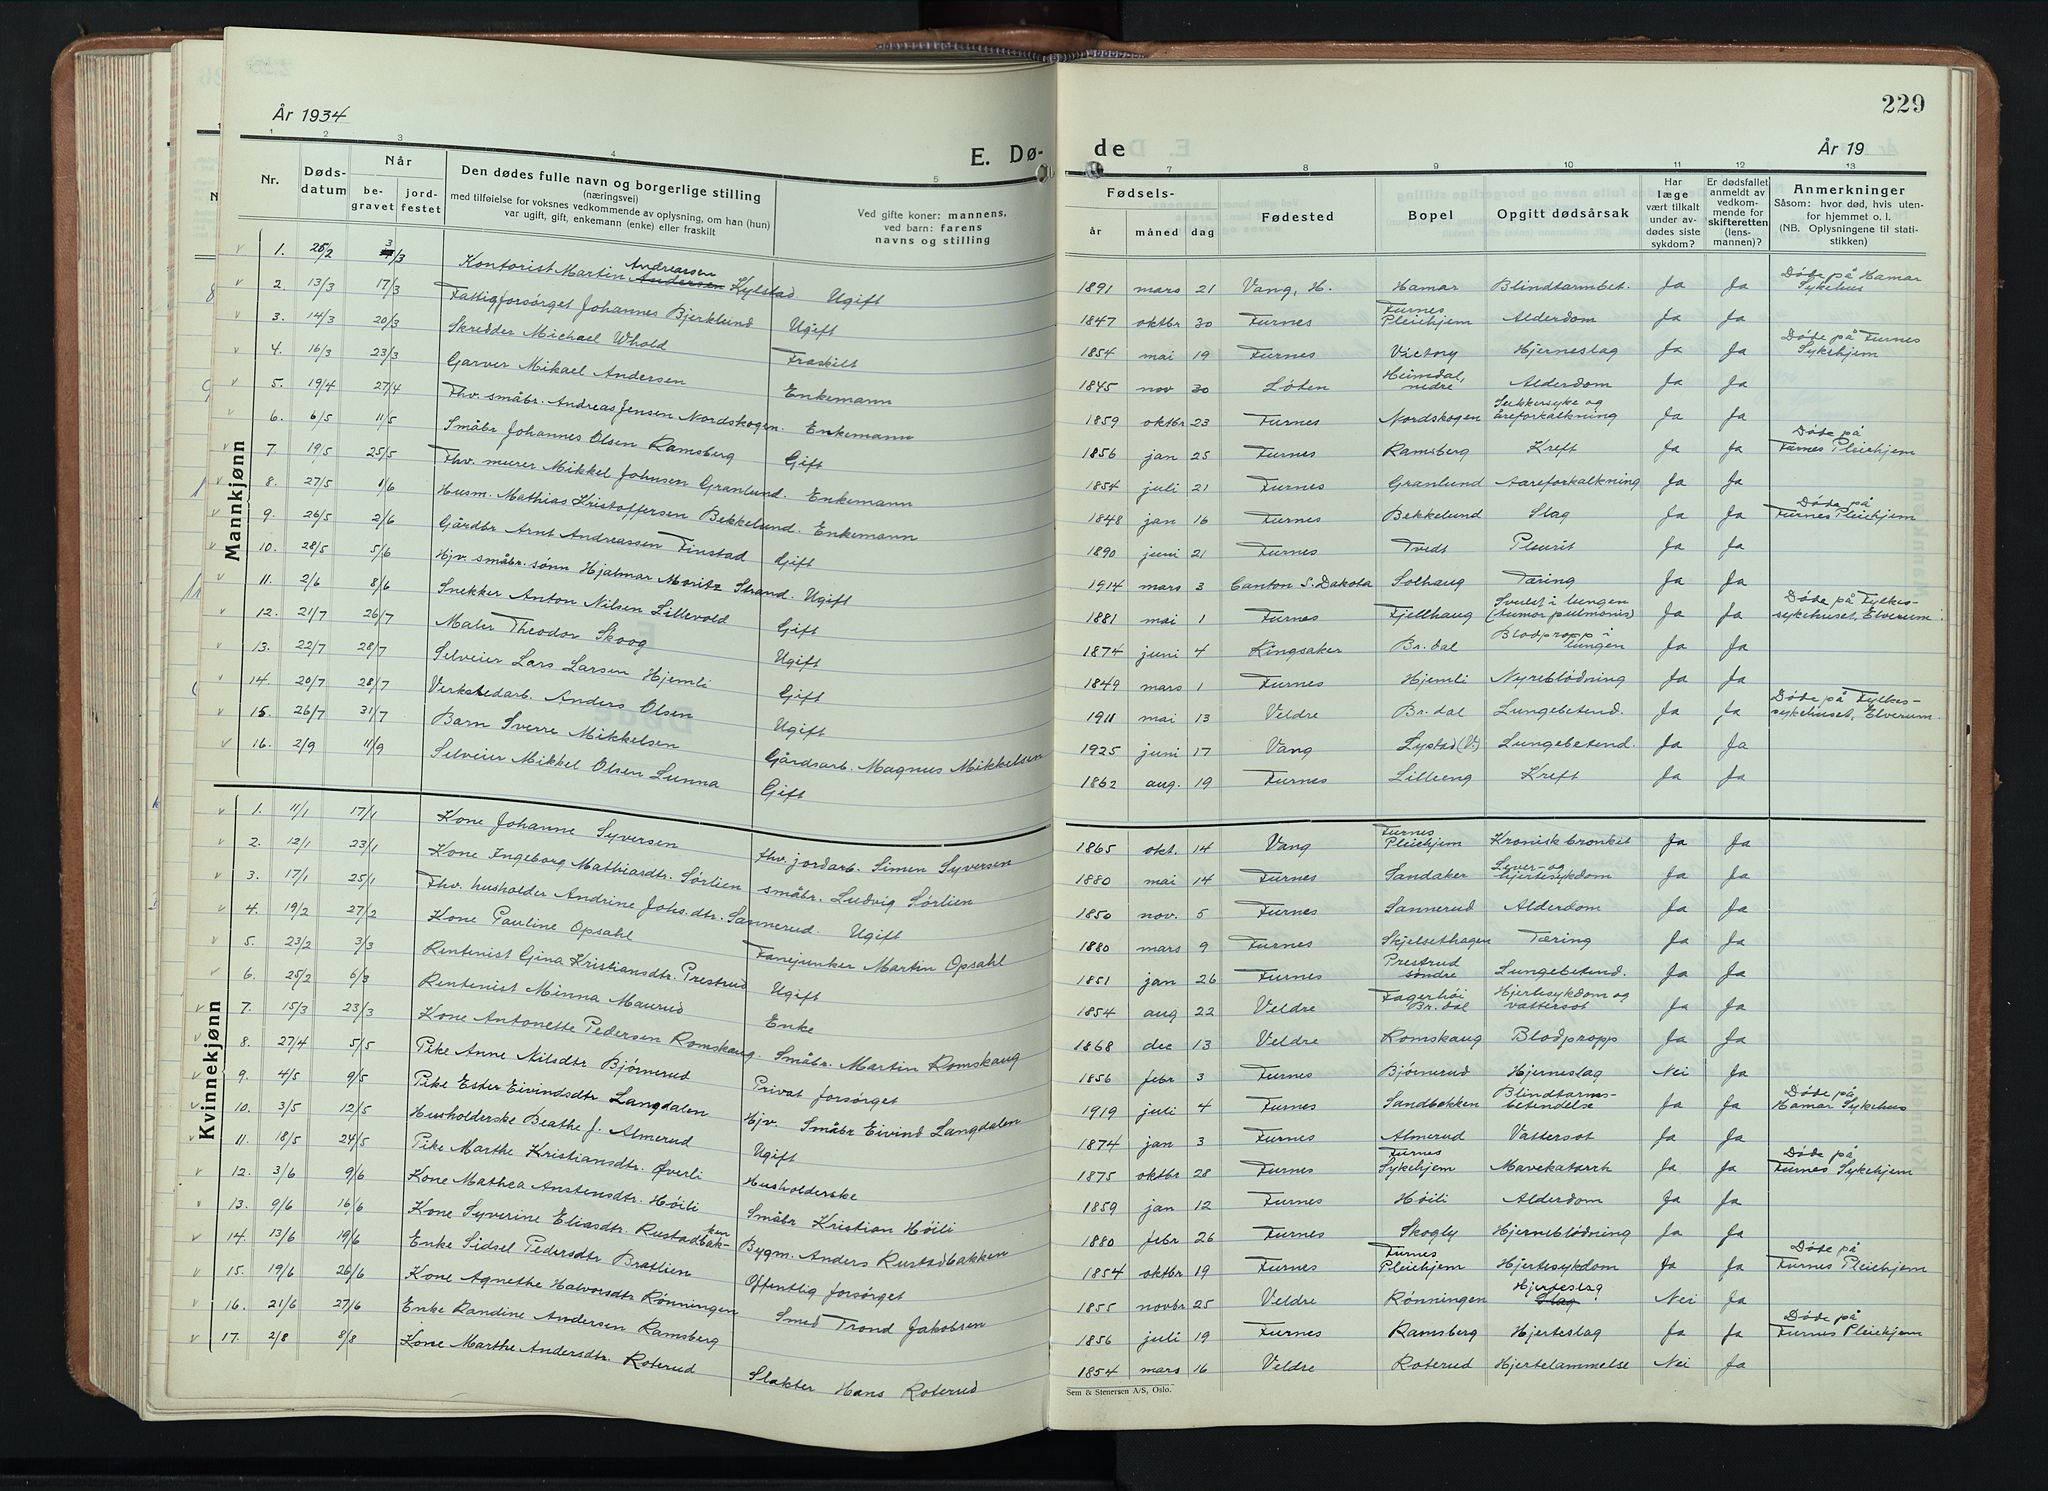 År 1934
E. Dø-
Nr.
Døds-
datum
Når
be-
gravet
jord-
festet
Den dødes fulle navn og borgerlige stilling
(næringsvei)
med tilføielse for voksnes vedkommende av oplysning, om han (hun)
var ugift, gift, enkemann (enke) eller fraskilt
Ved gifte koner: mannens,
ved barn: farens
navns og stilling
Mannkjønn
1. 25/2 3/3 Kontorist Martin Andreassen Andersen Kylstad Ugift
2. 13/3 17/3 Fattigforsørget Johannes Bjerklund Ugift
3. 14/3 20/3 Skredder Michael Whold Fraskilt
4. 16/3 23/3 Garver Mikael Andersen Enkemann
5. 19/4 27/4 Fhv. småbr. Andreas Jensen Nordskogen. Enkemann
6. 6/5 11/5 Småbr Johannes Olsen Ramsberg Gift
7. 19/5 25/5 Fhv. murer Mikkel Johnsen Granlund. Enkemann
8. 27/5 1/6 Husm. Mathias Kristoffersen Bekkelund. Enkemann
9. 26/5 2/6 Gårdbr Arnt Andreassen Finstad Gift
10. 28/5 5/6 Hjv. småbr. sønn Hjalmar Moritz Strand. Ugift
11. 2/6 8/6 Snekker Anton Nilsen Lillevold Gift
12. 21/7 26/7 Maler Theodor Skoog Ugift
13. 22/7 28/7 Selveier Lars Larsen Hjemli Gift
14. 20/7 28/7 Verkstedarb. Anders Olsen Ugift
15. 26/7 31/7 Barn Sverre Mikkelsen Gårdsarb. Magnus Mikkelsen
16. 2/9 11/9 Selveier Mikkel Olsen Lunna Gift
Kvinnekjønn
1. 11/1 17/1 Kone Johanne Syversen fhv. jordarb. Simen Syversen
2. 12/1 23/1 Kone Ingeborg Mathiasdtr. Sørlien småbr. Ludvig Sørlien
3. 17/1 25/1 Fhv. husholder Andrine Johs.dtr. Sannerud. Ugift
4. 19/2 27/2 Kone Pauline Opsahl Fanejunker Martin Opsahl
5. 23/2 3/3 Rentenist Gina Kristiansdtr. Prestrud Ugift
6. 25/2 6/3 Rentenist Minna Maurud Enke
7. 15/3 23/3 Kone Antonette Pedersen Romskaug. Småbr. Martin Romskaug
8. 27/4 5/5 Pike Anne Nilsdtr Bjørnerud Privat forsørget
9. 4/5 9/5 Pike Ester Eivindsdtr Langdalen Hjv. Småbr Eivind Langdalen
10. 3/5 12/5 Husholderske Beathe J. Almerud Ugift
11. 18/5 24/5 Pike Marthe Kristiansdtr. Øverli Husholderske
12. 3/6 9/6 Kone Mathea Anstensdtr. Høili Småbr Kristian Høili
13. 9/6 16/6 Kone Syverine Eliasdtr. Rustadbakken Bygm. Anders Rustadbakken
14. 13/6 19/6 Enke Sidsel Pedersdtr Bratlien Offentlig forsørget
15. 19/6 26/6 Kone Agnethe Halvorsdtr Rønningen Smed Trond Jakobsen
16. 21/6 27/6 Enke Randine Andersen Ramsberg
17. 2/8 8/8 Kone Marthe Andersdtr. Roterud Slakter Hans Roterud
229
de
År 19
Fødsels-
år
måned
dag
Fødested
Bopel
Opgitt dødsårsak
Har
læge
vært tilkalt
under av-
dødes siste
sykdom?
Er dødsfallet
anmeldt av
vedkom-
mende for
skifteretten
(lens-
mannen)?
Anmerkninger
Såsom: hvor død, hvis uten-
for hjemmet o. l.
(NB. Oplysningene til stati-
stikken)
1891 mars 21 Vang, H. Hamar Blindtarmbet. Ja Ja Døde på Hamar Sykehus
1847 oktbr 30 Furnes Furnes Pleiehjem Alderdom Ja Ja
1854 mai 19 Furnes Victory Hjerneslag Ja Ja Døde på Furnes Sykehjem
1845 nov 30 Løten Heimdal, nedre Alderdom Ja Ja
1859 oktbr 23 Furnes Nordskogen Sukkersyke og åreforkalkning Ja Ja
1856 jan 25 Furnes Ramsberg Kreft Ja Ja Døde på Furnes Pleiehjem
1854 juli 21 Furnes Granlund Aareforkalkning Ja Ja
1848 jan 16 Furnes Bekkelund Slag Ja Ja Døde på Furnes Pleiehjem
1890 juni 21 Furnes Tvedt Pleurit Ja Ja
1914 mars 3 Canton S. Dakota Solhaug Tæring Ja Ja
1881 mai 1 Furnes Fjellhaug Svulst i lungen (tumor pulmonis) Ja Ja Døde på Fylkes-sykehuset, Elverum.
1874 juni 4 Ringsaker Br.dal Blodpropp i lungen Ja Ja
1849 mars 1 Furnes Hjemli Nyreblødning Ja Ja
1911 mai 13 Veldre Br.dal Lungebetend. Ja Ja Døde på Fylkes-sykehuset, Elverum.
1925 juni 17 Vang Lystad (V.) Lungebetend. Ja Ja
1862 aug. 19 Furnes Lilleeng Kreft Ja Ja
1865 okt. 14 Vang Furnes Pleiehjem Kronisk bronkit Ja Ja
1880 mai 14 Furnes Sandaker Lever- og hjertesykdom Ja Ja
1850 nov. 5 Furnes Sannerud Alderdom Ja Ja
1880 mars 9 Furnes Skjelsethagen Tæring Ja Ja
1851 jan 26 Furnes Prestrud søndre Lungebetend. Ja Ja
1854 aug 22 Veldre Fagerhøi Br.dal Hjertesykdom og vattersot Ja Ja
1868 dec 13 Veldre Romskaug Blodpropp Ja Ja
1856 febr 3 Furnes Bjørnerud Hjerneslag Nei Ja
1919 juli 4 Furnes Sandbekken Blindtarms-betendelse Ja Ja Døde på Hamar Sykehus
1874 jan 3 Furnes Almerud Vattersot Ja Ja
1875 oktbr 28 Furnes Furnes Sykehjem Mavekatarrh Ja Ja Døde på Furnes Sykehjem
1859 jan 12 Furnes Høili Alderdom Ja Ja
1880 febr 26 Furnes Skogly Hjerneblødning Ja Ja
1854 oktbr 19 Furnes Furnes Pleiehjem Hjertesykdom Ja Ja Døde på Furnes Pleiehjem
1855 novbr 25 Veldre Rønningen Hjerteslag Slag Nei Ja
1856 juli 19 Furnes Ramsberg Hjerteslag Ja Ja Døde på Furnes Pleiehjem
1854 mars 16 Veldre Roterud Hjertelammelse Nei Ja
Sem & Stenersen A/S, Oslo.